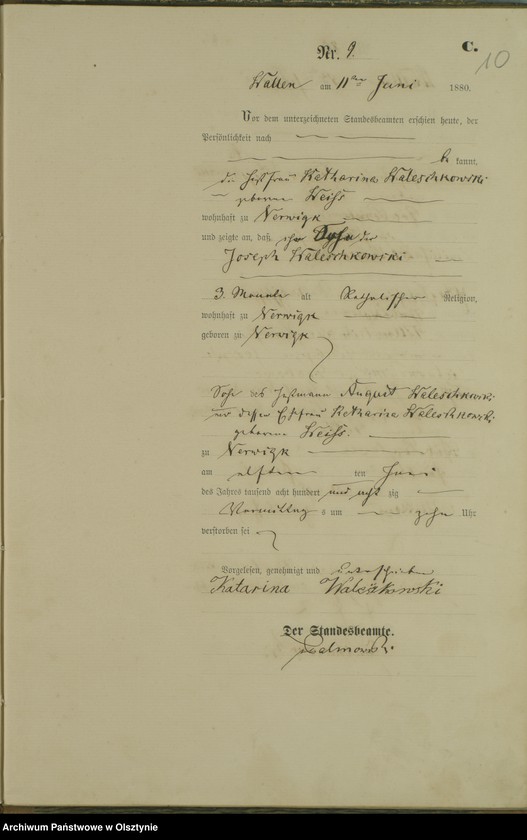 C.
10
Nr. 9.
Wallen am 11ten Juni 1880.
Vor dem unterzeichneten Standesbeamten erschien heute, der
Persönlichkeit nach
be kannt,
die Katharina Waleschkowski
geborene Weiß
wohnhaft zu
und zeigte an, daß ihr Sohn der
Joseph Waleschkowski
3. Monate alt Katholischer Religion,
wohnhaft zu
geboren zu
Sohn des August Waleschkowski
und dessen Ehefrau Katharina Waleschkowski
geborene Weiß.
zu
am elften ten Juni
des Jahres tausend acht hundert und acht zig
Vormittag s um zehn Uhr
verstorben sei
Vorgelesen, genehmigt und unterschrieben
Katarina Waleszkowski
Der Standesbeamte.
Archiwum Państwowe w Olsztynie